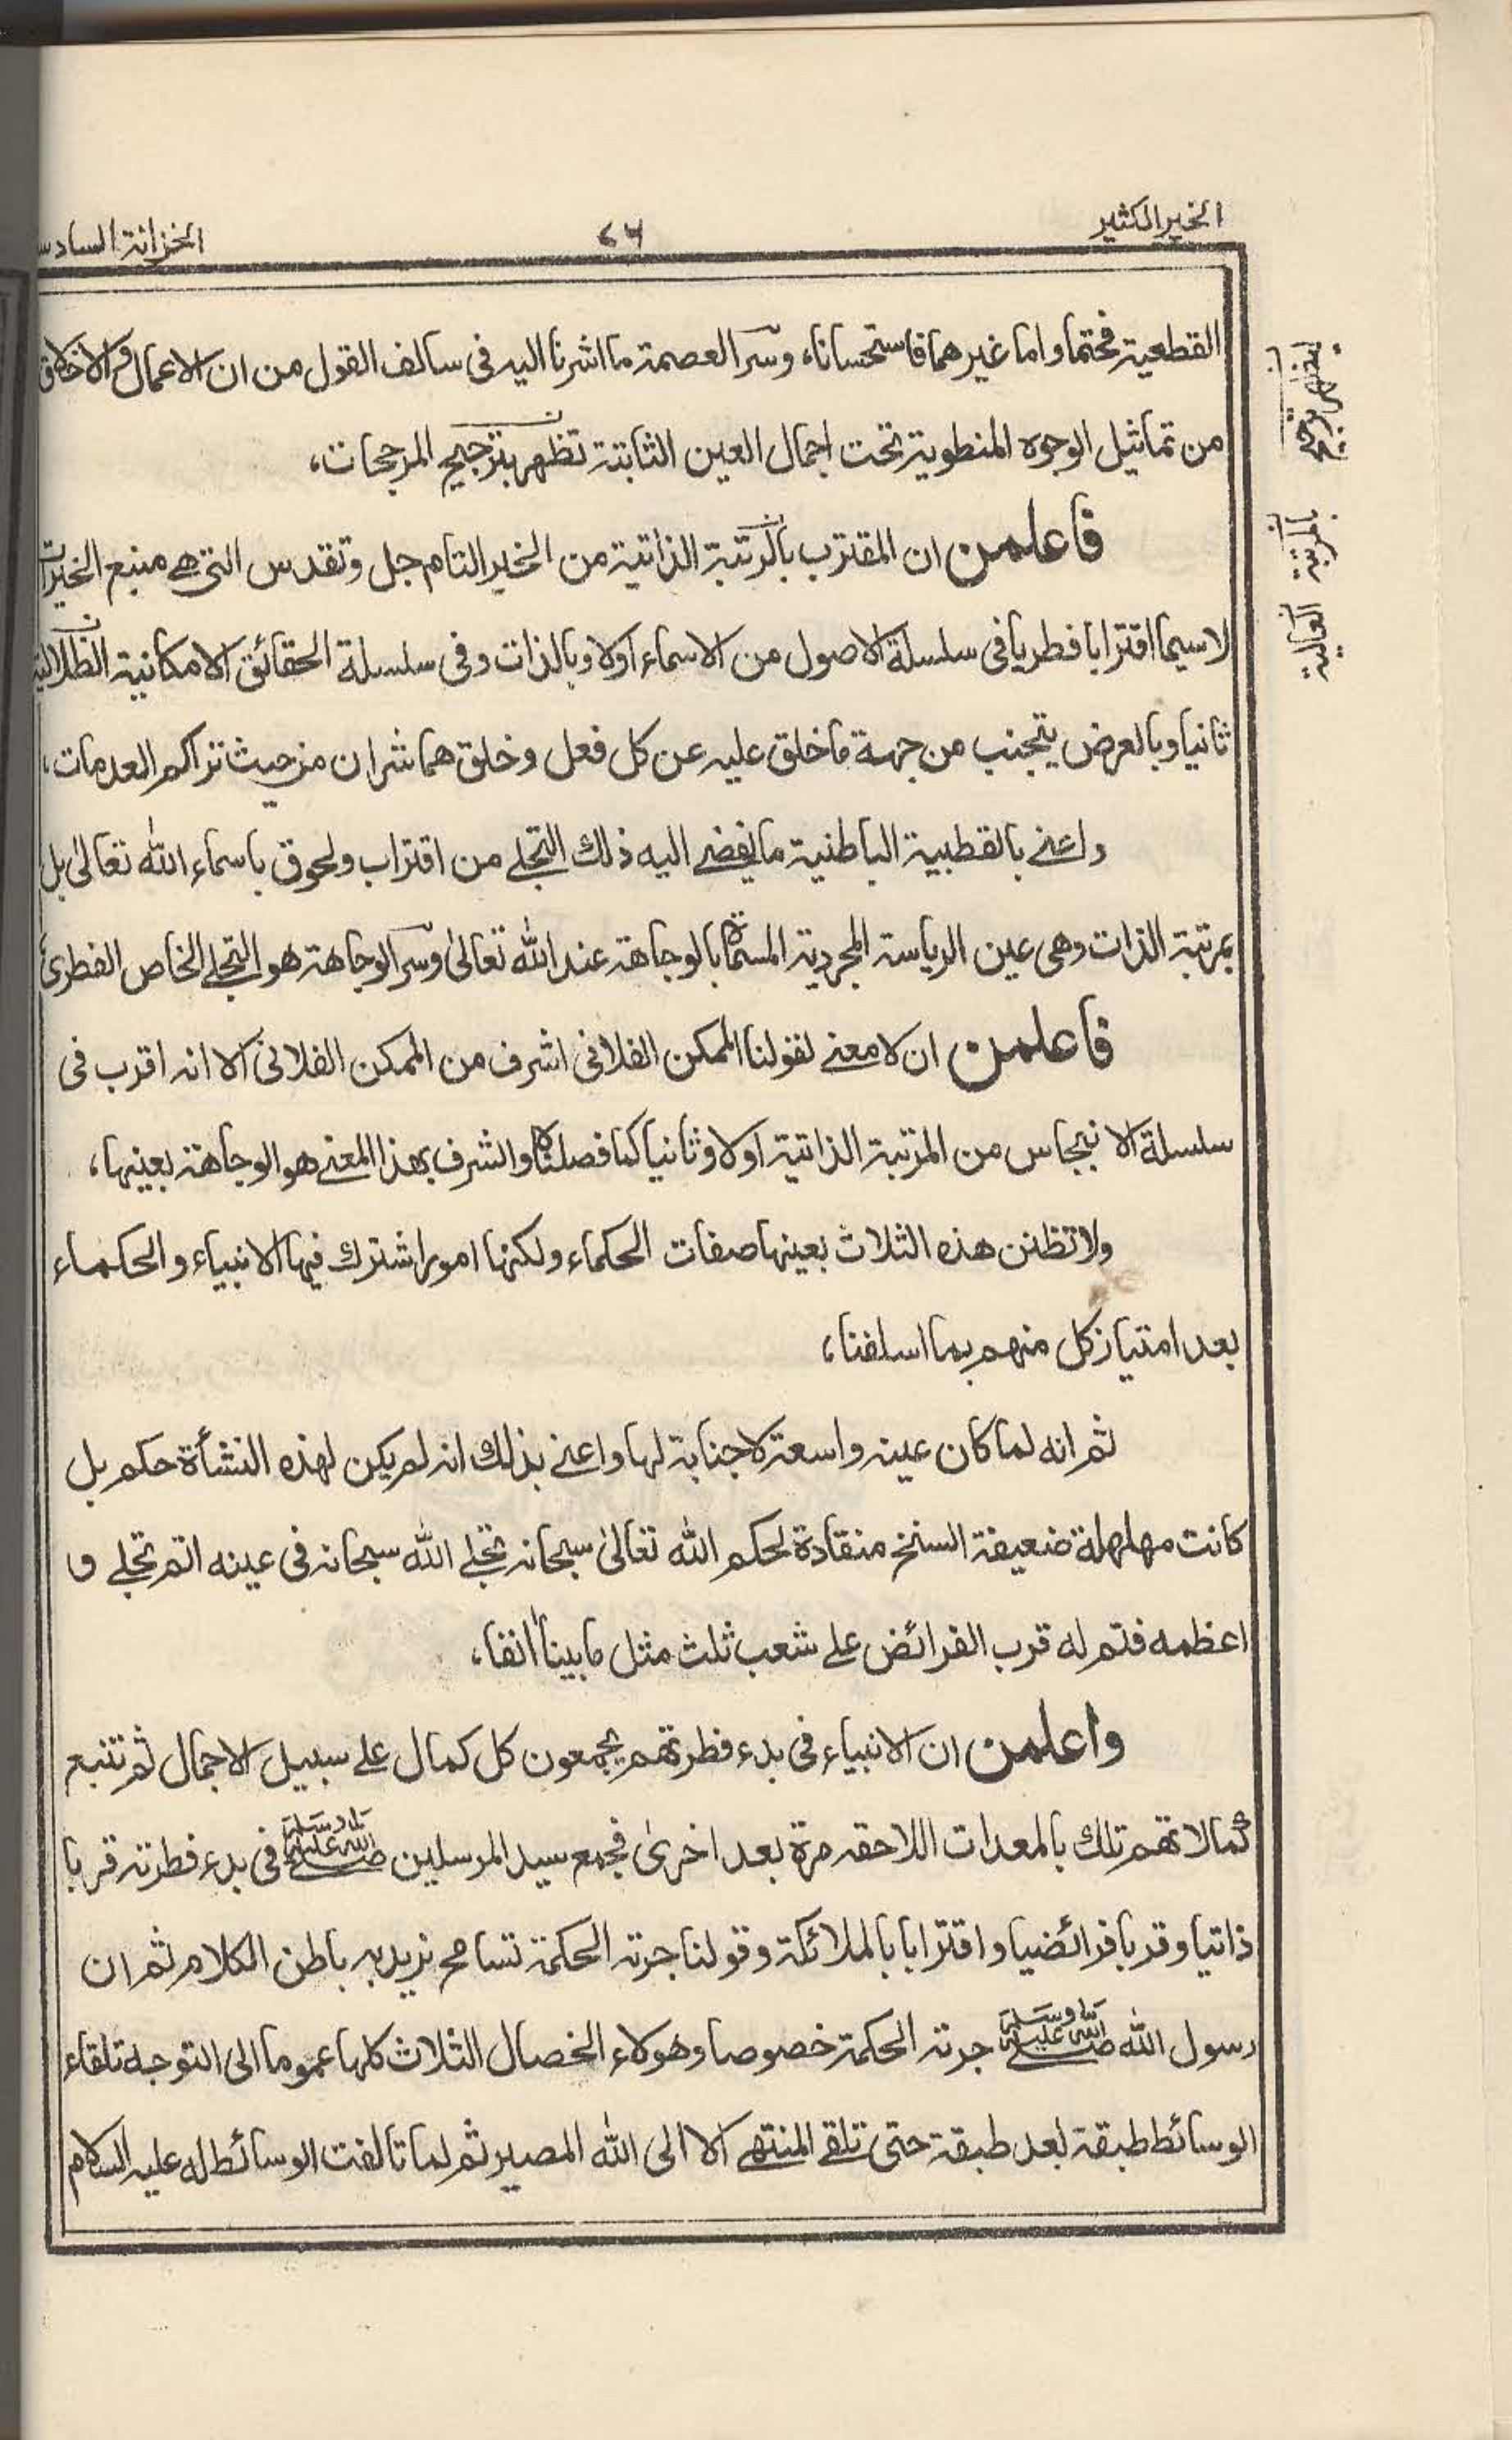 الخير الكثير
٤٦
الخزانة السادس
القطعية فحتما واما غيرهما فاستحسانا، وسر العصمة ما اشرنا اليه فى سالف القول من ان الاعمال والاخلاق
من تماثيل الوجوه المنطوية تحت اجمال العين الثابتة تظهر بترجيح المرجحات،
فاعلمن ان المقترب بالرتبة الذاتية من الخير التام جل وتقدس التى هے منبع الخيرات
لاسيما اقترابا فطريا فى سلسلة الاصول من الاسماء اولا وبالذات وفى سلسلة الحقائق الامكانية الظلالية
ثانيا وبالعرض يتجنب من جهة ما خلق عليه عن كل فعل وخلق هما شران من حيث تراكم العدمات،
واعنے بالقطبية الباطنية ما يفضے اليه ذلك التجلے من اقتراب ولحوق باسماء الله تعالىٰ بل
بمرتبة الذات وهى عين الرياسة المجردية المسماة بالوجاهة عند الله تعالىٰ وسر الوجاهة هو التجلے الخاص الفطرى
فاعلمن ان لا معنے لقولنا الممكن الفلانى اشرف من الممكن الفلانى الا انه اقرب فى
سلسلة الانبجاس من المرتبة الذاتية اولا وثانيا كما فصلنا والشرف بهذا المعنے هو الوجاهة بعينها،
ولا تظنن هذه الثلاث بعينها صفات الحكماء ولكنها امور اشترك فيها الانبياء والحكماء
بعد امتياز كل منهم بما اسلفنا،
ثم انه لما كان عينه واسعة لا جنابة لها واعنے بذلك انه لم يكن لهذه النشأة حكم بل
كانت مهلهلة ضعيفة السنخ منقادة لحكم الله تعالىٰ سبحانه تجلے الله سبحانه فى عينه اتم تجلے و
اعظمه فتم له قرب الفرائض علے شعب ثلث مثل ما بينا اٰنفا،
واعلمن ان الانبياء فى بدء فطرتهم يجمعون كل كمال علے سبيل الاجمال ثم تتبع
كمالاتهم تلك بالمعدات اللاحقه مرة بعد اخرىٰ فجمع سيد المرسلين صلے الله عليه وسلم فى بدء فطرته قربا
ذاتيا وقربا فرائضيا واقترابا بالملائكة وقولنا جرته الحكمة تسامح نريد به باطن الكلام ثم ان
رسول الله صلے الله عليه وسلم جرته الحكمة خصوصا وهولاء الخصال الثلاث كلها عموما الى التوجه تلقاء
الوسائط طبقة بعد طبقة حتى تلقے المنتهے الا الى الله المصير ثم لما تالفت الوسائط له عليه السلام
بالمرتبة
العالية